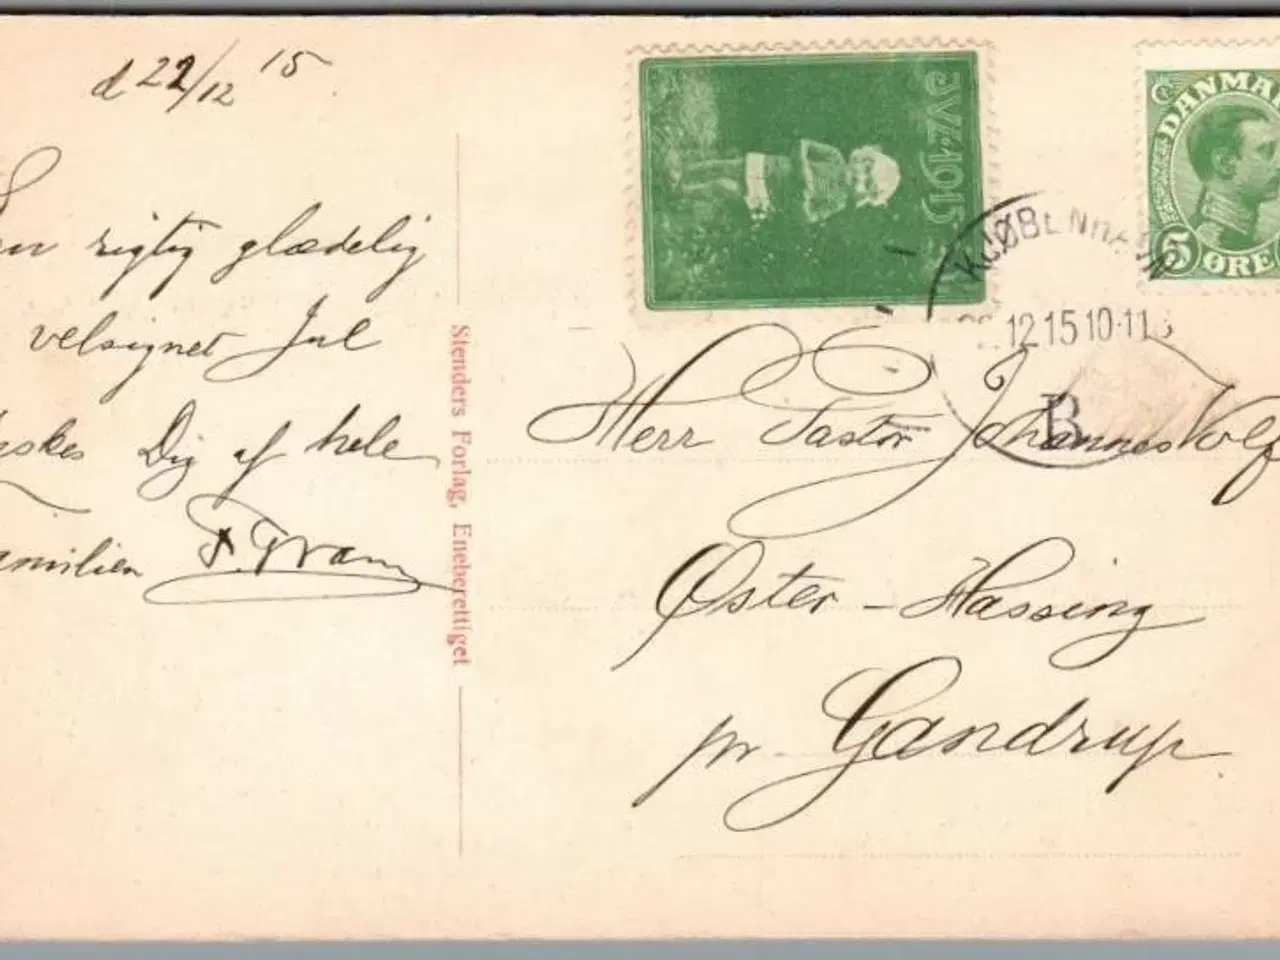 d 22/12 15
En rigtig glædelig
velsignet Jul
ønskes Dig af hele
Familien F. Fram
Stenders Forlag, Eneberettiget
JVL·1915
DANMARK
5 ØRE
KJØBENHAVN
12.15 10-11
B
Herr Pastor Johannes Wolf
Øster-Hassing
pr. Gandrup.